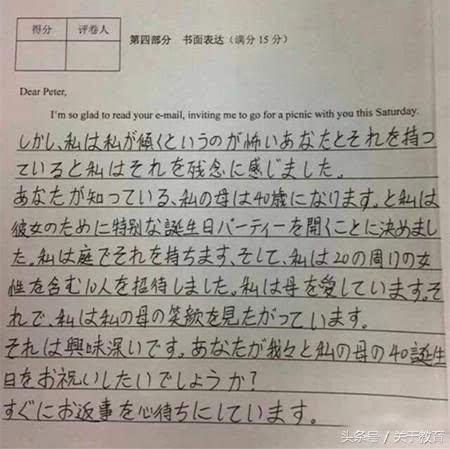 得分 评卷人
第四部分 书面表达（满分 15 分）
Dear Peter,
I'm so glad to read your e-mail, inviting me to go for a picnic with you this Saturday.
しかし、私は私が傾くというのが怖いあなたとそれを持つ
ていると私はそれを残念に感じました。
あなたが知っている、私の母は40歳になります。と私は
彼女のために特別な誕生日パーティーを開くことに決めまし
た。私は庭でそれを持ちます、そして、私は20の周りの女
性を含む10人を招待しました。私は母を愛しています。そ
れで、私は私の母の笑顔を見たがっています。
それは興味深いです。あなたが我々と私の母の40誕生
日をお祝いしたいでしょうか?
すぐにお返事を心待ちにしています。
头条号 / 关于教育